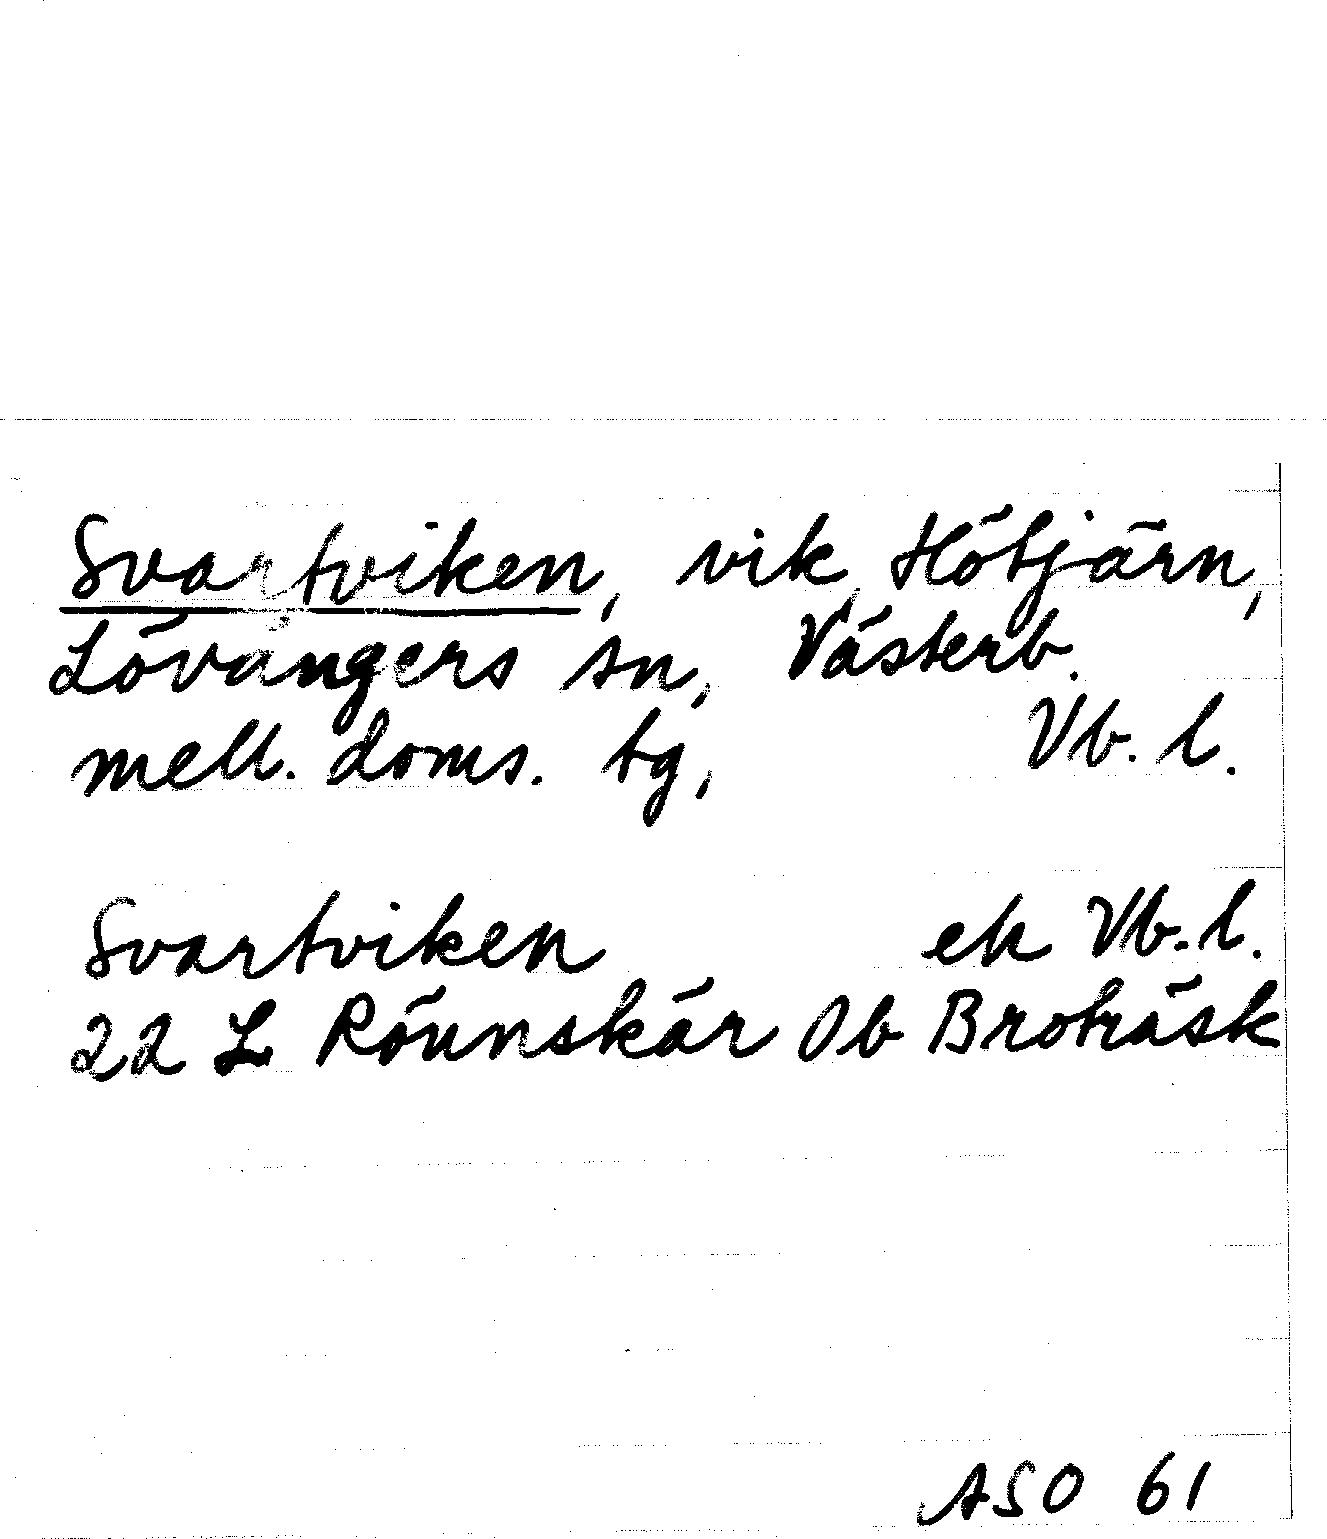 Svartviken, vik, Hötjärn,
Lövångers sn, Västerb.
mell. doms. tg, Vb. l.
Svartviken ek Vb. l.
22 L Rönnskär Ob Broträsk
ASO 61